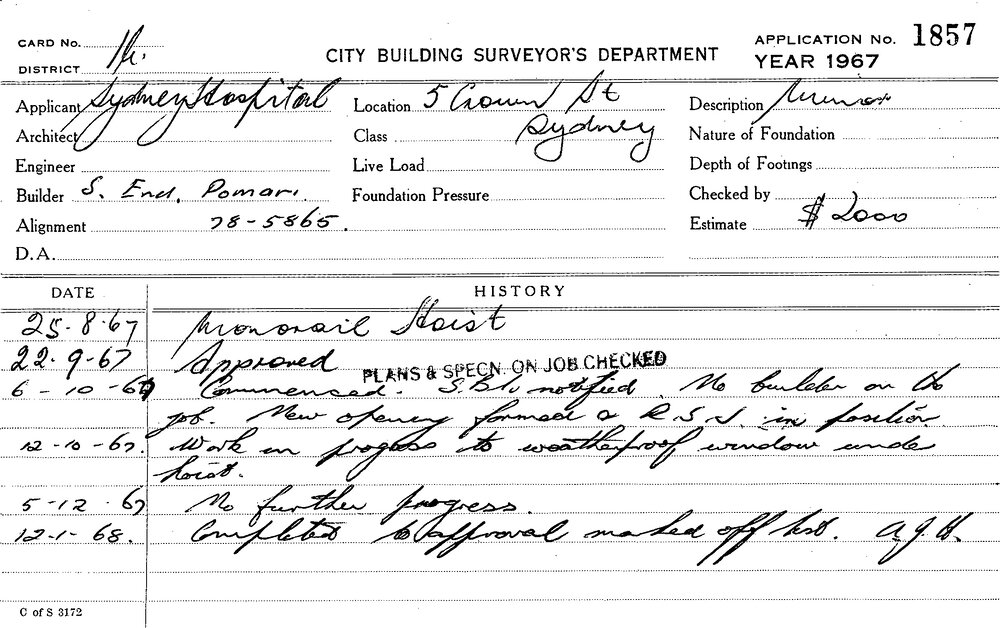 CARD No. 1h.
DISTRICT
CITY BUILDING SURVEYOR'S DEPARTMENT
APPLICATION No. 1857
YEAR 1967
Applicant Sydney Hospital
Location 5 Crown St
Sydney
Description Minor
Architect
Class
Nature of Foundation
Engineer
Live Load
Depth of Footings
Builder S. End. Pomari.
Foundation Pressure
Checked by
Alignment 78-5865.
Estimate $2000
D.A.
DATE HISTORY
25-8-67 Monorail Hoist
22-9-67 Approved PLANS & SPECN. ON JOB CHECKED
6-10-67 Commenced. notified. No builder on the
job. New opening formed & R.S.J. in position
12-10-67. Work in progress to weatherproof window under
hoist.
5-12-67 No further progress.
12-1-68. Completed to approval marked off list. A.J.H.
C of S 3172